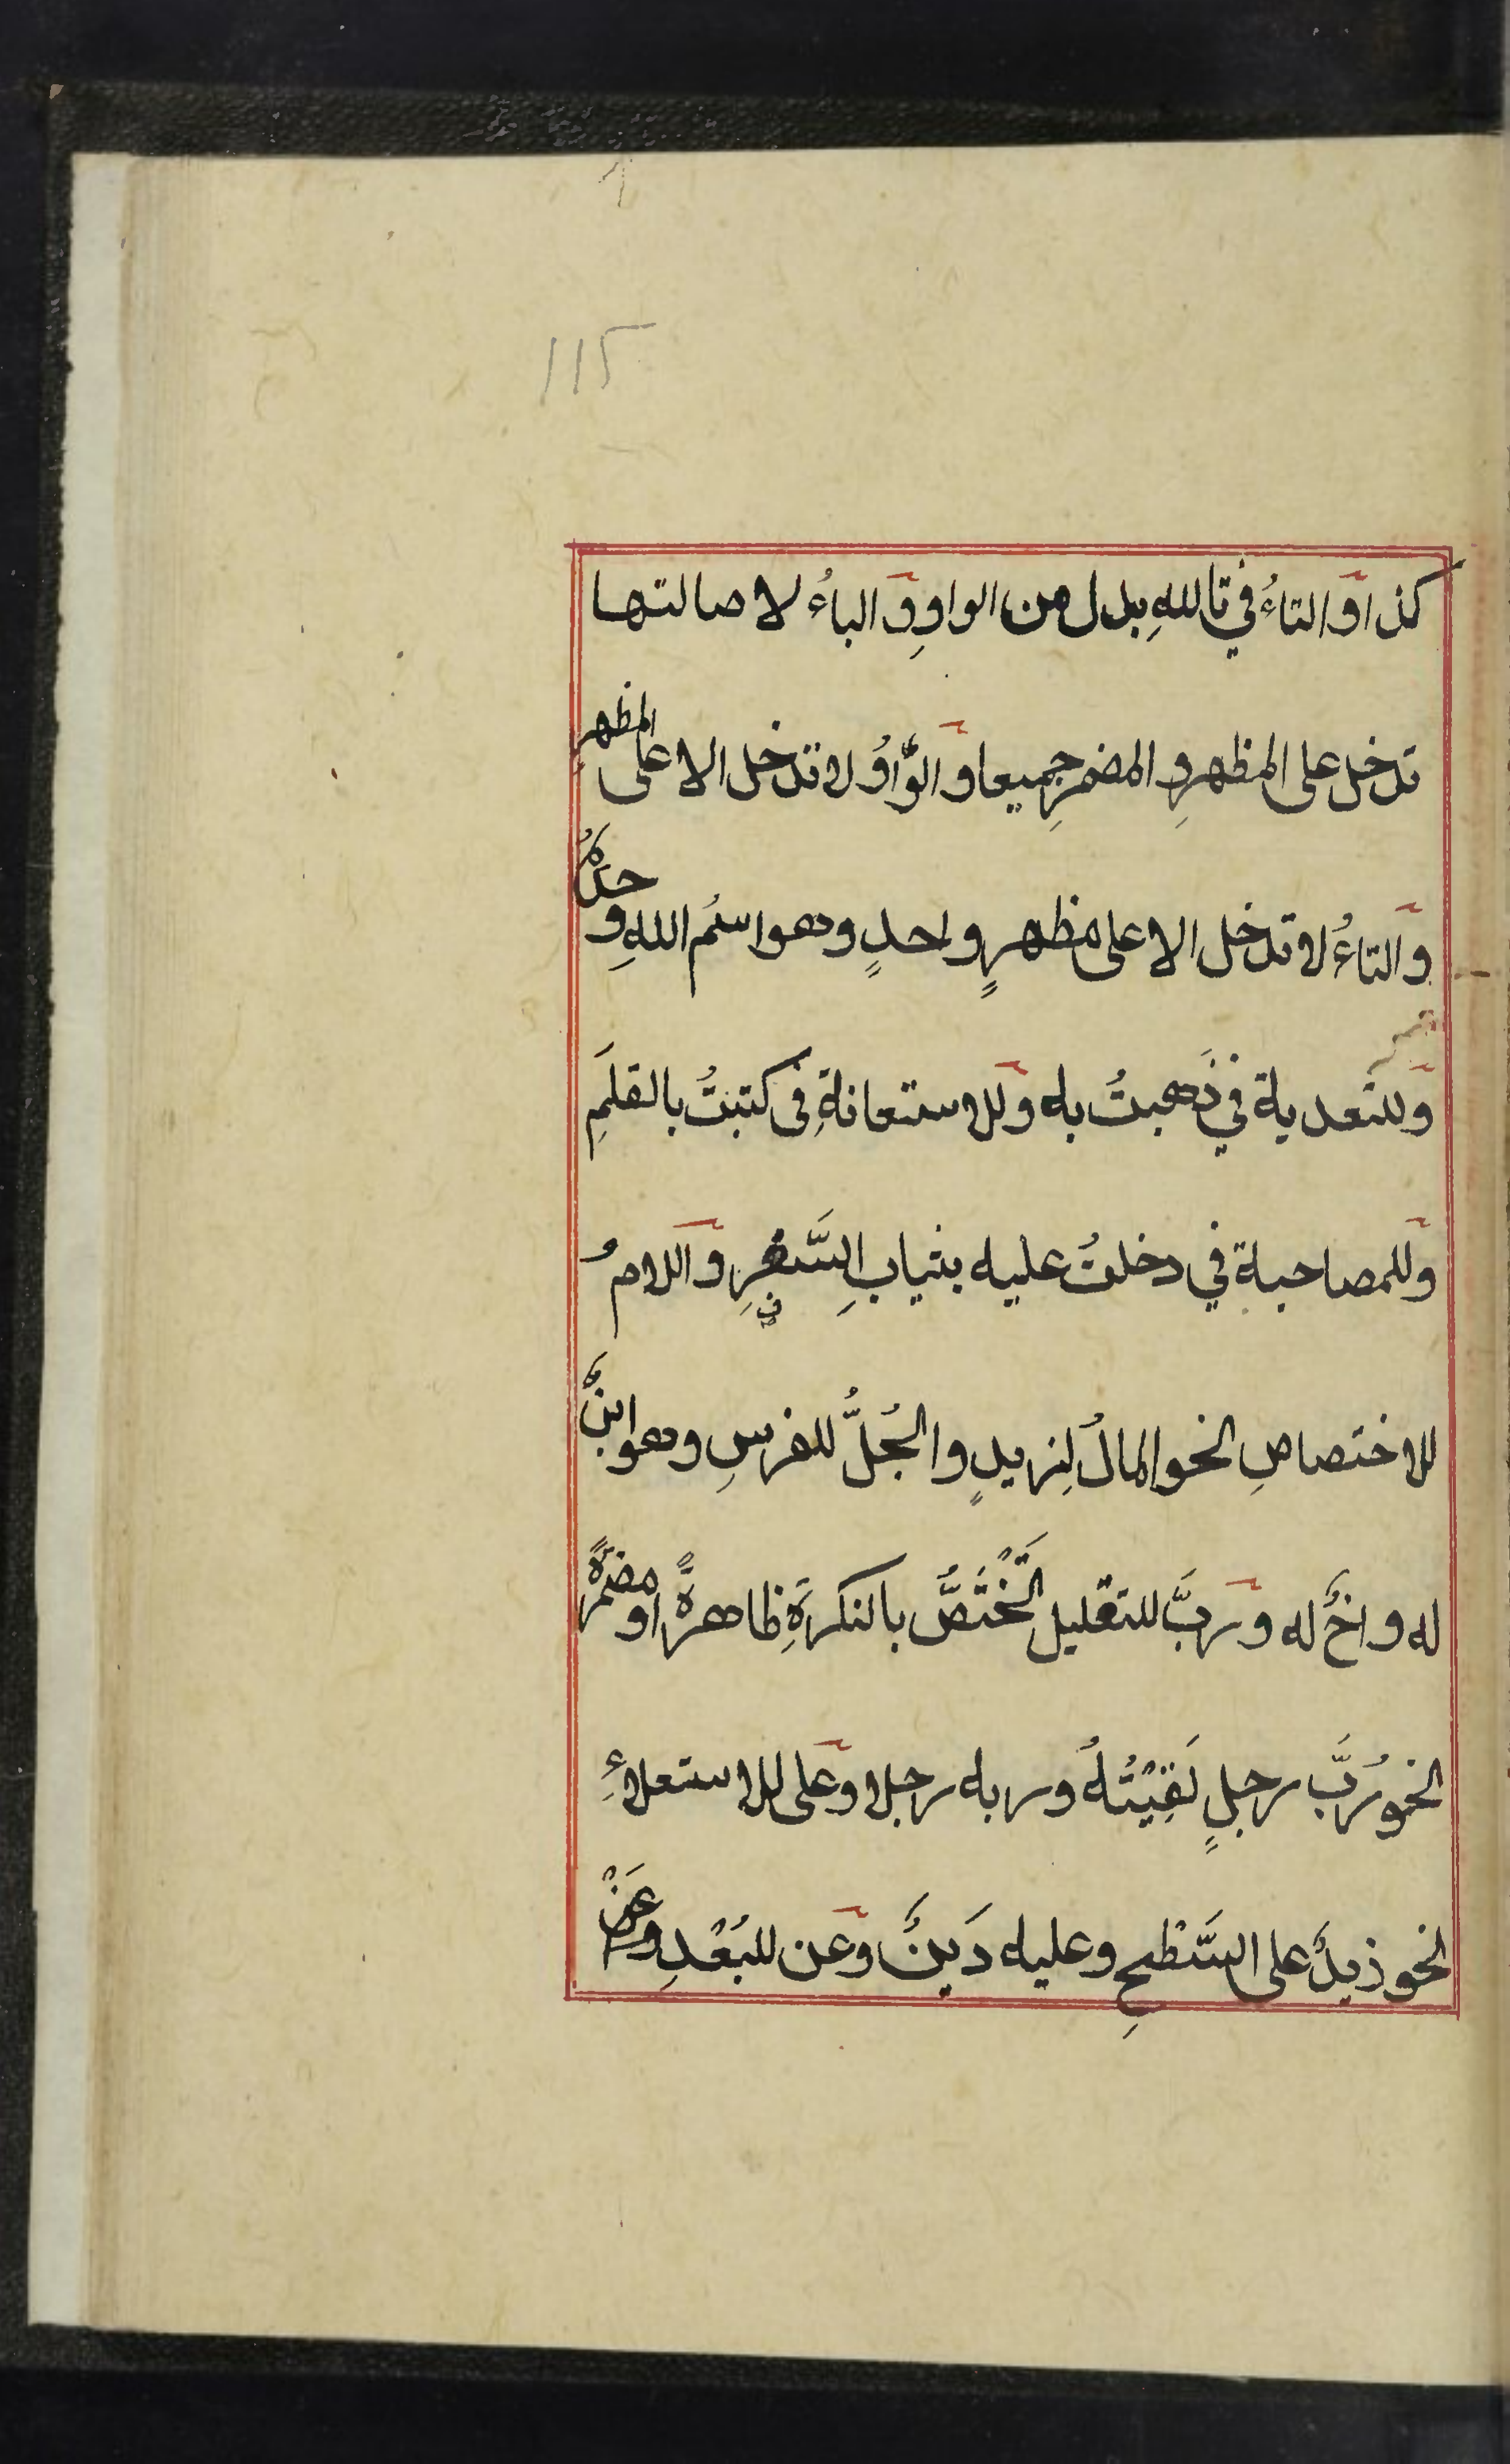 115
كذا والتاءُ في تاللهِ بدل من الواوِ والباءُ لاصالتها
تدخل على المظهرِ والمضمرِ جميعا والوَّاوُ لا تدخل الا على المظهرِ
والتاءُ لا تدخل الا على مظهرٍ واحدٍ وهو اسمُ اللهِ وحدَهُ
وللتعدية في ذَهبتُ به وللاستعانةِ فى كتبتُ بالقلَمِ
وللمصاحبة في دخلتُ عليه بثيابِ السَّفرِ واللامُ
للاختصاصِ نحو المالُ لِزيدٍ والجُلُّ للفرسِ وهو ابنٌ
له واخٌ له وربَّ للتقليل تَخْتَصُّ بالنكرَةِ ظاهرةً او مضمرةً
نحو رُبَّ رجلٍ لَقِيْتُهُ وربه رجلا وعلى للاستعلاءِ
نحو زيدٌ على السَّطْحِ وعليه دَينٌ وعن للبُعْدِ وعَنْ